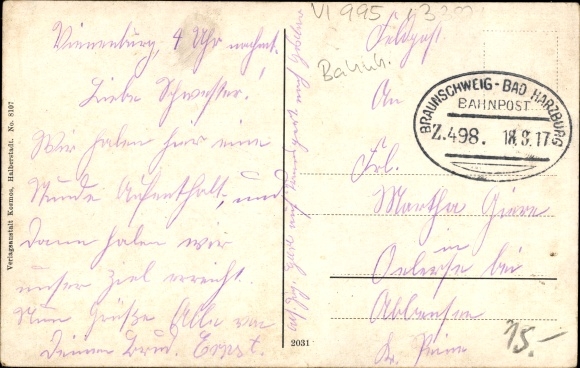 Vienenburg, 4 Uhr nachm.
Liebe Schwester.
Wir haben hier eine
Stunde Aufenthalt, und
dann haben wir
unser Ziel erreicht.
Nun Grüße Alle von
Deinem Brud. Ernst.
Verlagsanstalt Kosmos, Halberstadt. No. 8107
2031
VI 995
Bahnh.
Feldpost.
An
Frl.
Martha Giere
in
Oelerse bei
Abbensen
Kr. Peine
BRAUNSCHWEIG - BAD HARZBURG
BAHNPOST
Z.498. 18.3.17
15.-